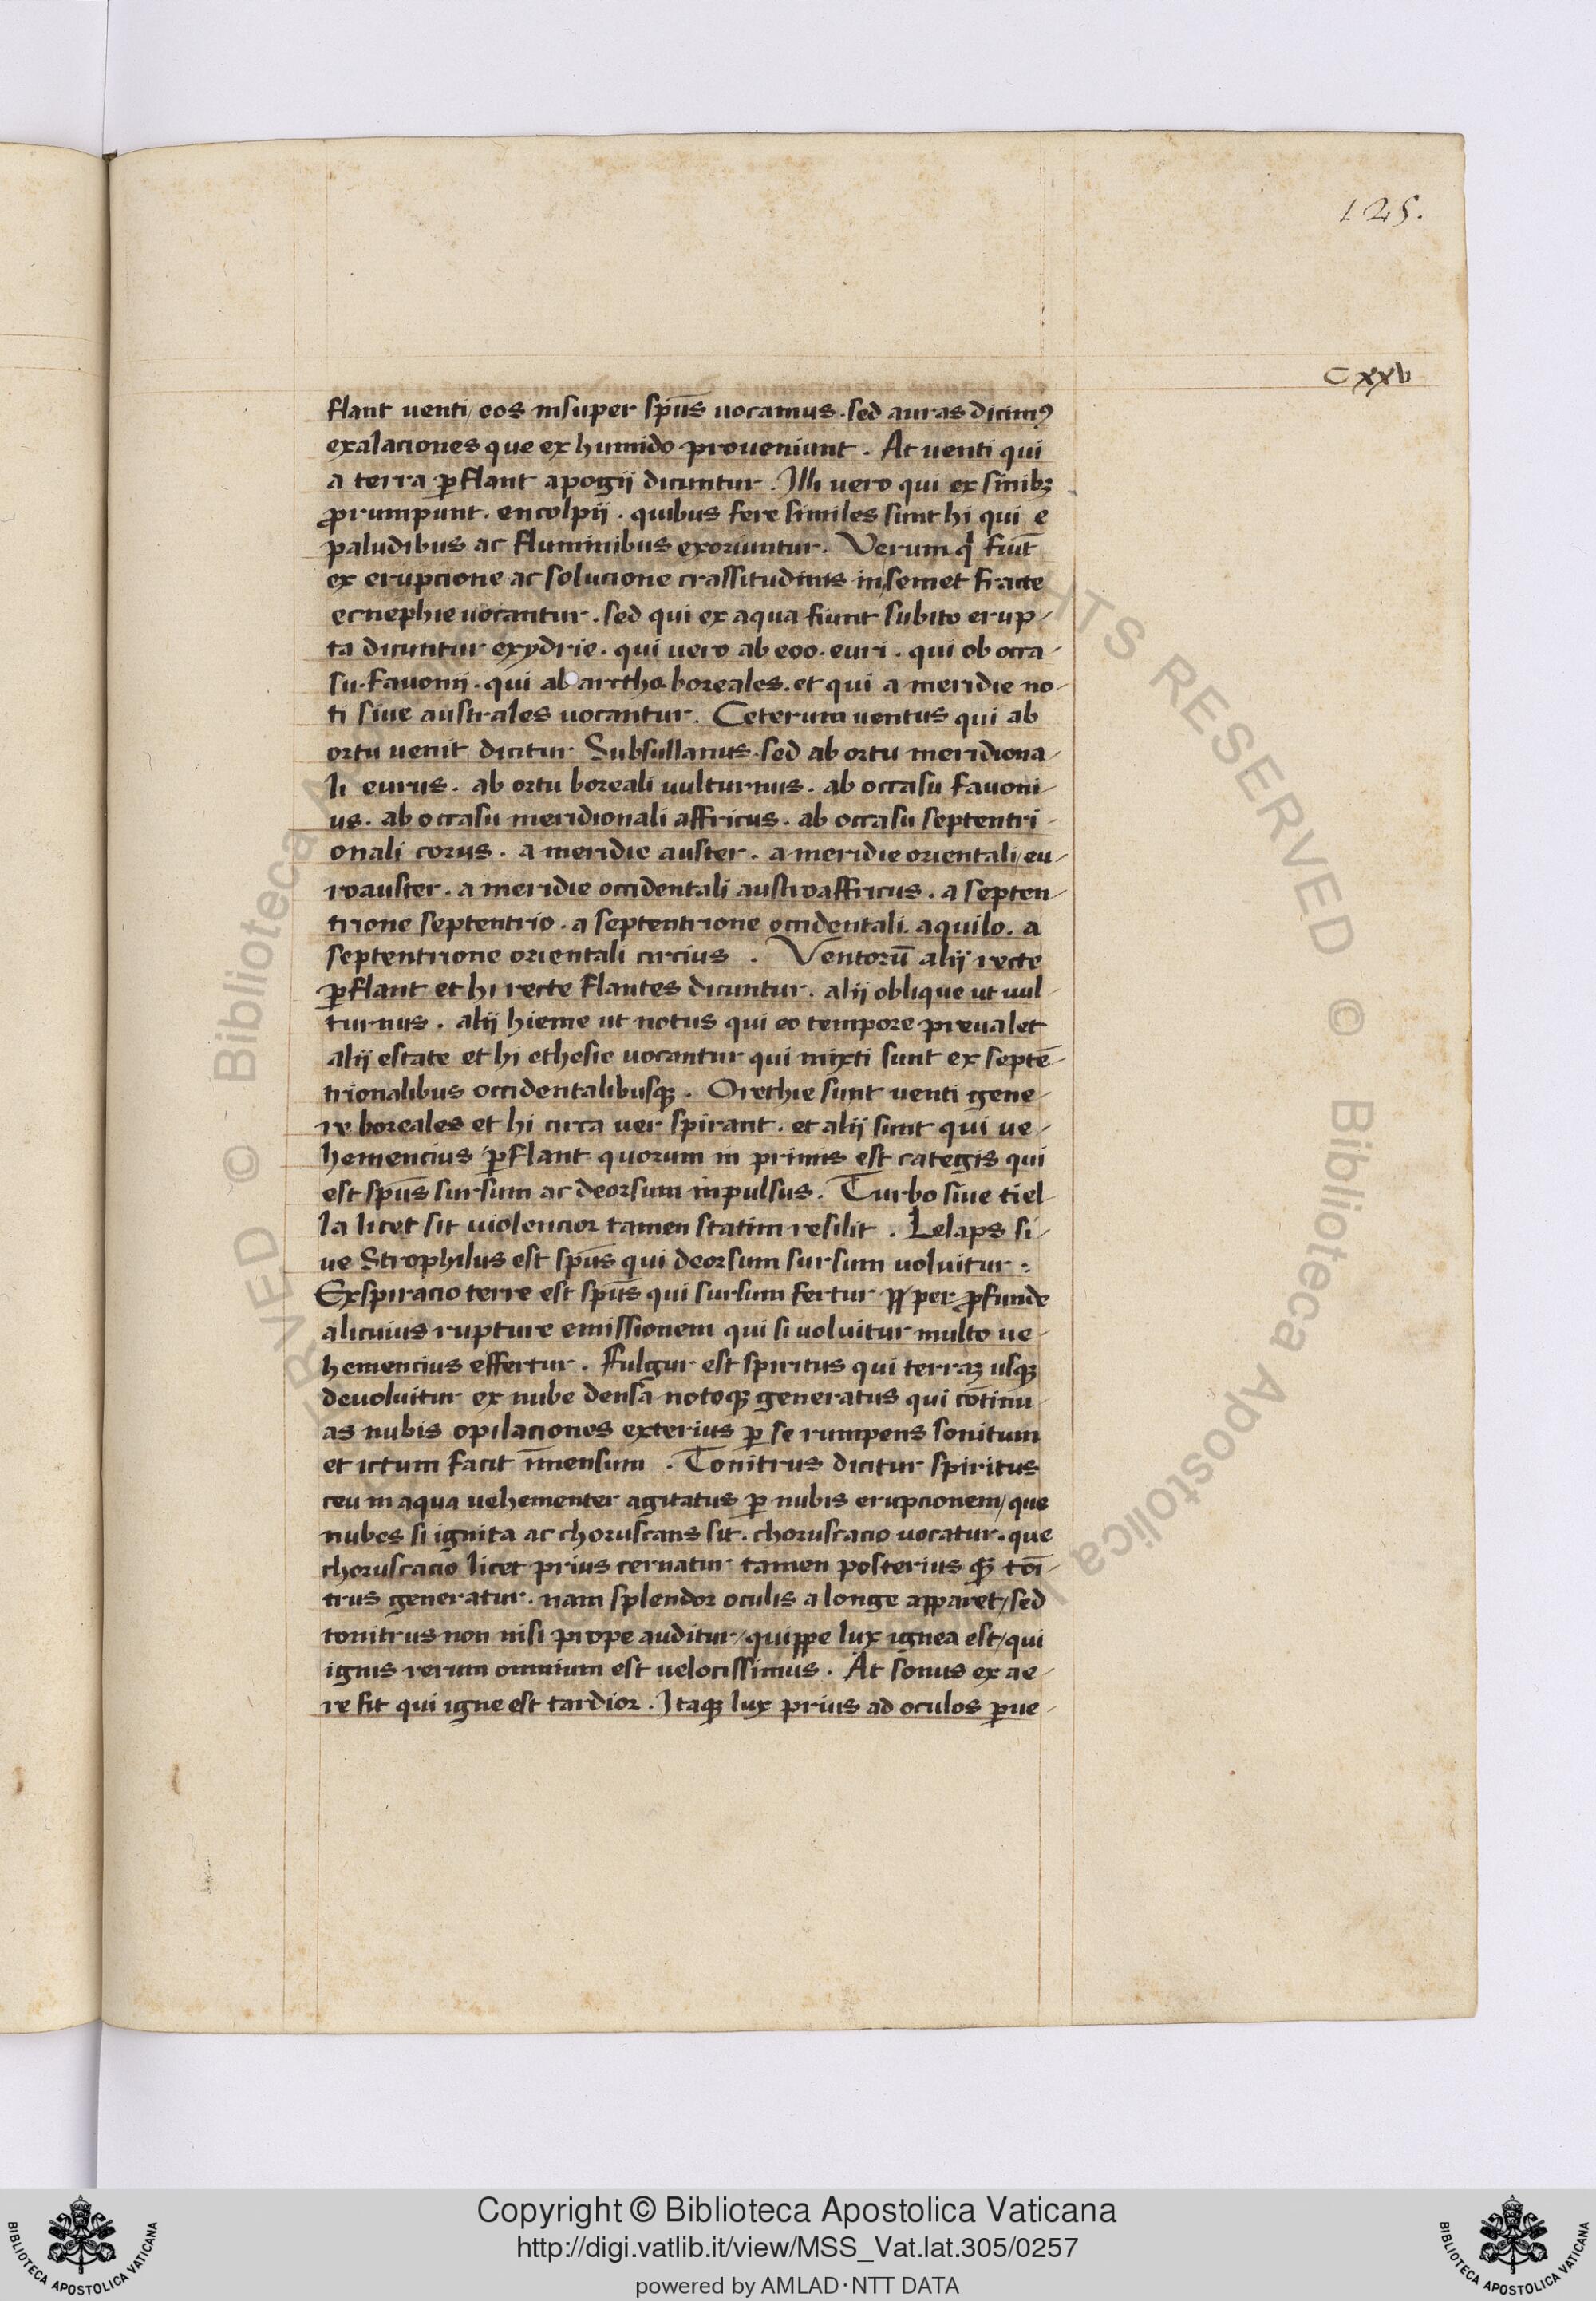 125.
CXXV
flant uenti / eos insuper sp̄us uocamus . sed auras dicimꝰ
exalaciones que ex humido proueniunt . At uenti qui
a terra ꝑflant apogij dicuntur . Illi uero qui ex sinibꝫ
ꝓrumpunt . encolpij . quibus fere similes sunt hi qui e
paludibus ac fluminibus exoriuntur . Verum q̇ fiūt
ex erupcione ac solucione crassitudinis in semet fracte
ecnephie uocantur . sed qui ex aqua fiunt subito erup-
ta dicuntur exydrie . qui uero ab eoo . euri . qui ob occa-
su . fauonij . qui ab arctho boreales . et qui a meridie no-
ti siue australes uocantur . Ceterum uentus qui ab
ortu uenit dicitur Subsullanus . sed ab ortu meridiona-
li eurus . ab ortu boreali uulturnus . ab occasu fauoni-
us . ab occasu meridionali affricus . ab occasu septentri-
onali corus . a meridie auster . a meridie orientali / eu-
roauster . a meridie occidentali austroaffricus . a septen-
trione septentrio . a septentrione occidentali . aquilo . a
septentrione orientali circius . Ventorū alij recte
ꝑflant et hi recte flantes dicuntur . alij oblique ut uul-
turnus . alij hieme ut notus qui eo tempore preualet
alij estate et hi ethesie uocantur qui mixti sunt ex septē-
trionalibus occidentalibusqꝫ . Orethie sunt uenti gene-
re boreales et hi circa uer spirant . et alij sunt qui ue-
hemencius ꝑflant quorum in primis est categis qui
est sp̄us sursum ac deorsum inpulsus . Turbo siue tiel-
la licet sit uiolencior tamen statim resilit . Lelaps si-
ue Strophilus est sp̄us qui deorsum sursum uoluitur :
Exspiracio terre est sp̄us qui sursum fertur per ꝓfunde
alicuius rupture emissionem qui si uoluitur multo ue-
hemencius effertur . Fulgur est spiritus qui terraꝫ usqꝫ
deuoluitur ex nube densa notoqꝫ generatus qui cōtinu-
as nubis opilaciones exterius ꝑ se rumpens sonitum
et ictum facit īmensum . Tonitrus dicitur spiritus
ceu in aqua uehementer agitatus ꝑ nubis erupcionem / que
nubes si ignita ac choruscans sit . choruscacio uocatur . que
choruscacio licet prius cernatur tamen posterius qꝫ toī-
trus generatur . nam splendor oculis a longe apparet / sed
tonitrus non nisi prope auditur / quippe lux ignea est / qui
ignis rerum omnium est uelocissimus . At sonus ex ae-
re fit qui igne est tardior . Itaqꝫ lux prius ad oculos ꝑue-
© Biblioteca Apostolica Vaticana
RIGHTS RESERVED © Biblioteca Apostolica
Copyright © Biblioteca Apostolica Vaticana
http://digi.vatlib.it/view/MSS_Vat.lat.305/0257
powered by AMLAD·NTT DATA
BIBLIOTECA APOSTOLICA VATICANA
BIBLIOTECA APOSTOLICA VATICANA